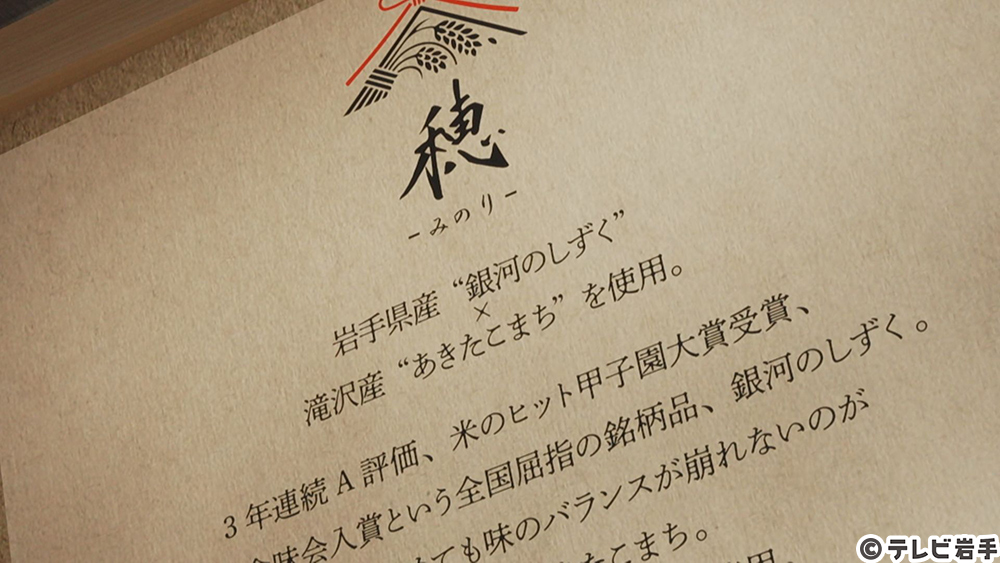 穂
-みのり-
岩手県産“銀河のしずく”
×
滝沢産“あきたこまち”を使用。
3年連続A評価、米のヒット甲子園大賞受賞、
味会入賞という全国屈指の銘柄品、銀河のしずく。
ても味のバランスが崩れないのが
たこまち。
用。
©テレビ岩手